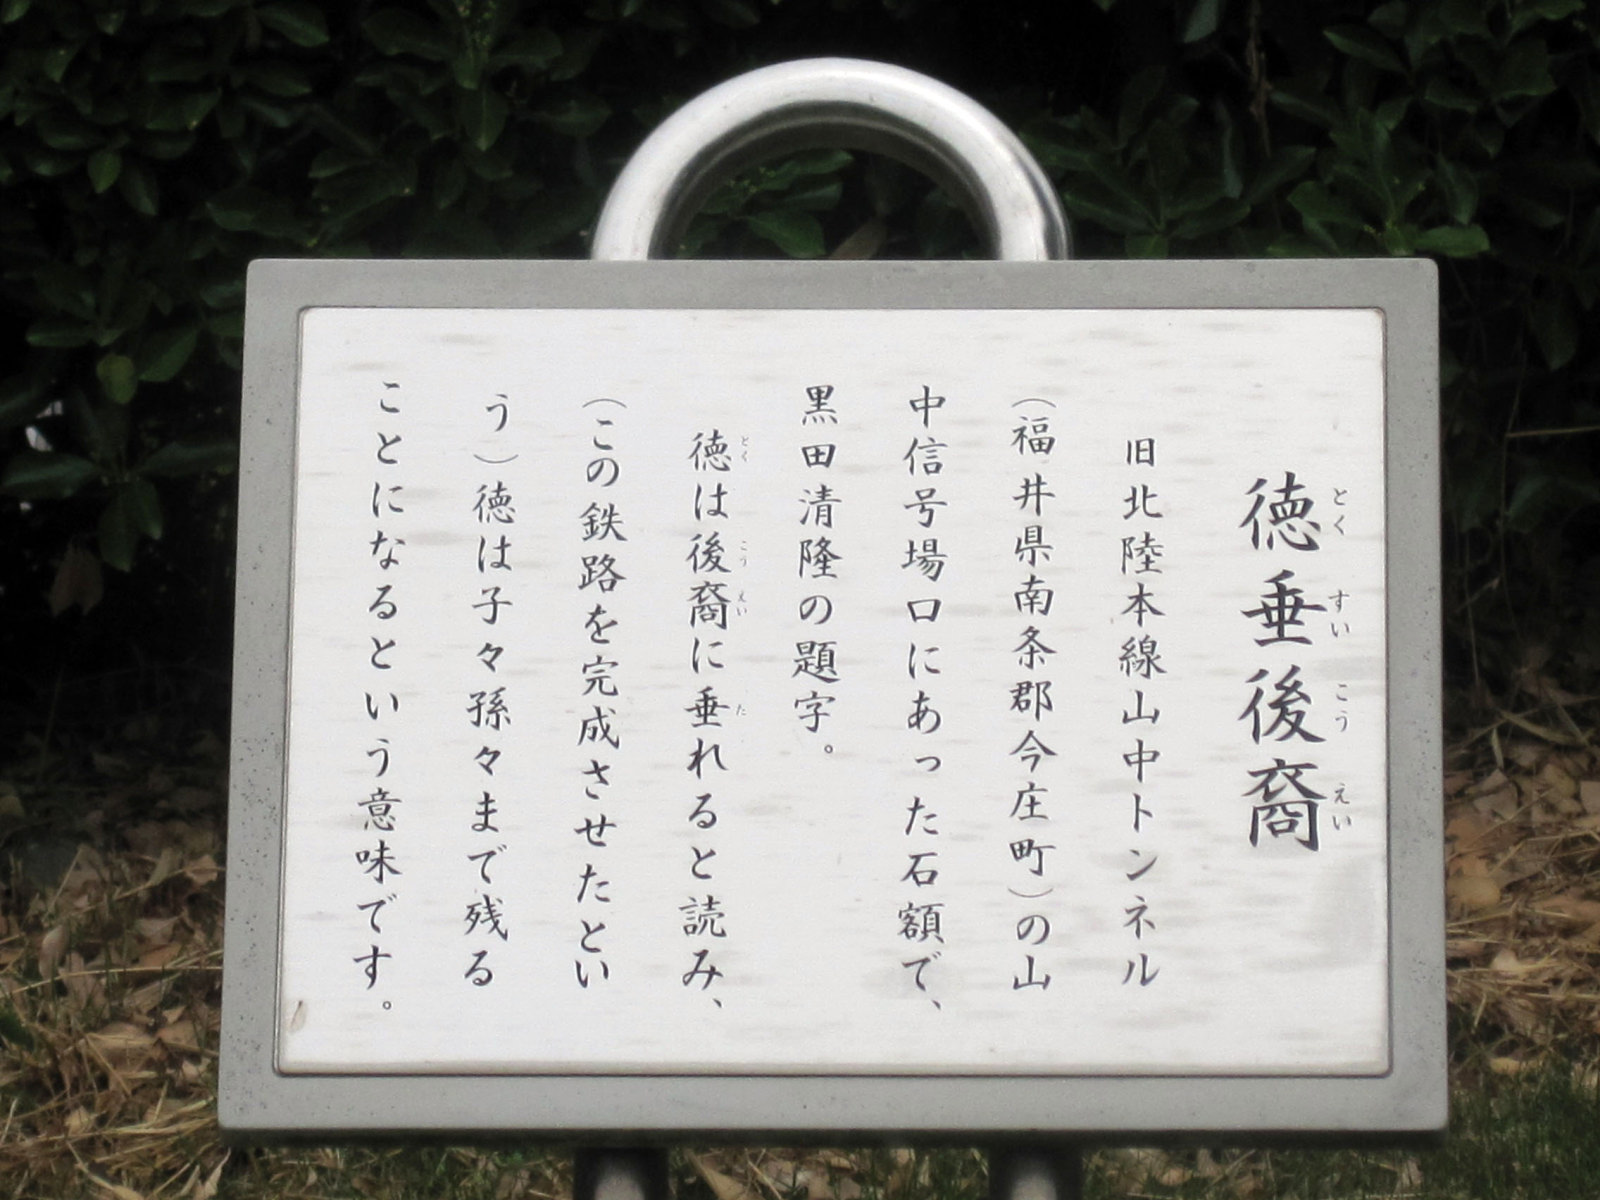 徳垂後裔
とく すい こう えい
旧北陸本線山中トンネル
(福井県南条郡今庄町)の山
中信号場口にあった石額で、
黒田清隆の題字。
徳は後裔に垂れると読み、
とく こう えい た
(この鉄路を完成させたとい
う)徳は子々孫々まで残る
ことになるという意味です。